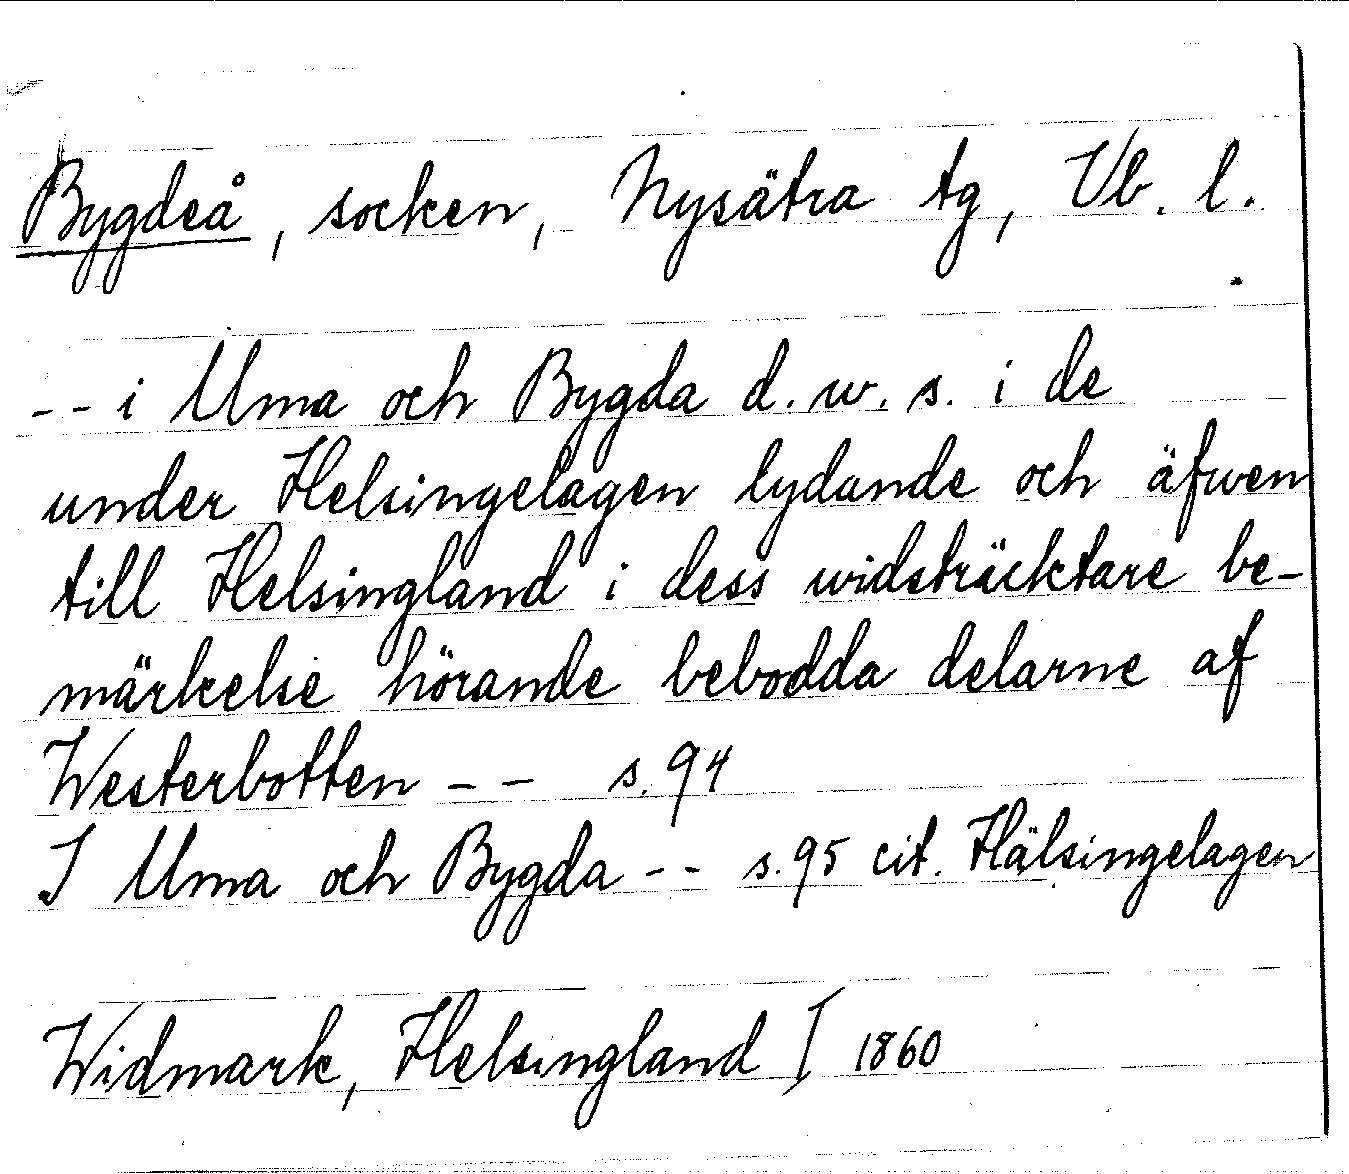 Bygdeå, socken, Nysätra tg, Vb. l.
-- i Uma och Bygda d.w.s. i de
under Helsingelagen lydande och äfwen
till Helsingland i dess widsträcktare be-
märkelse hörande bebodda delarne af
Westerbotten -- s.94
I Uma och Bygda -- s.95 cit. Hälsingelagen
Widmark, Helsingland I 1860